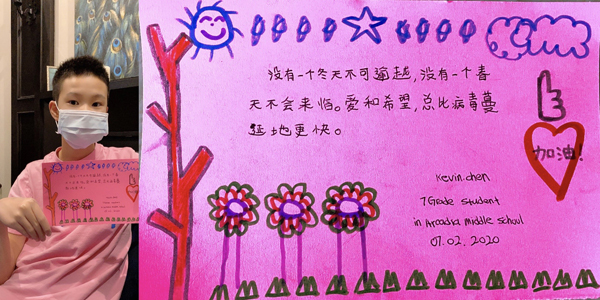 没有一个冬天不可逾越,没有一个春
天不会来临。爱和希望,总比病毒蔓
延地更快。
加油!
Kevin.chen
7 Grade student
in Arcadia Middle School
07.02.2020